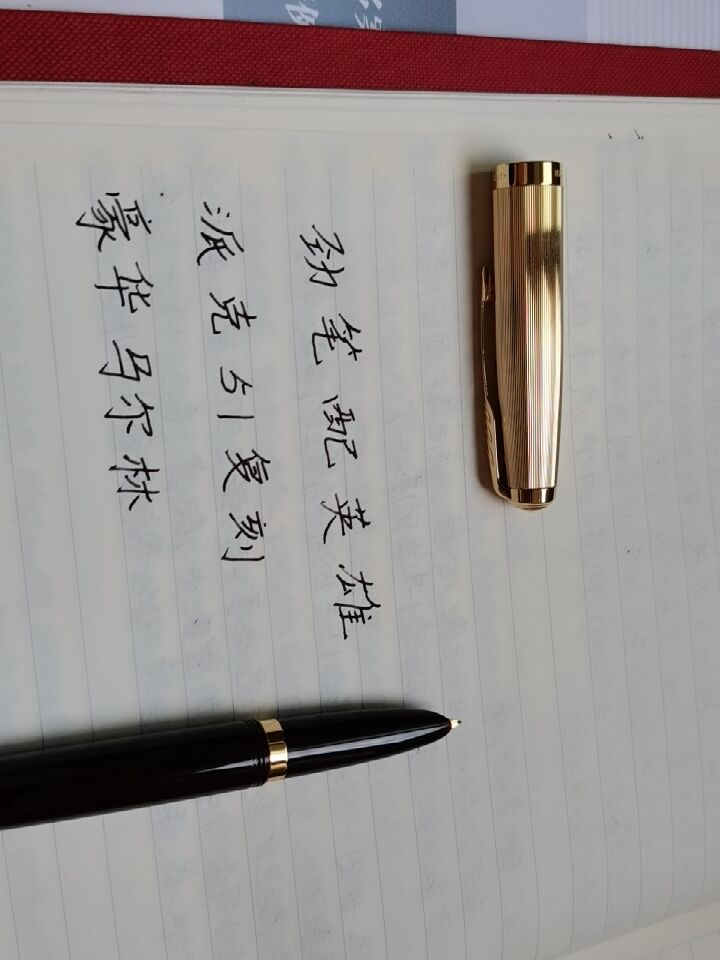 劲笔配英雄
派克51复刻
豪华马尔林